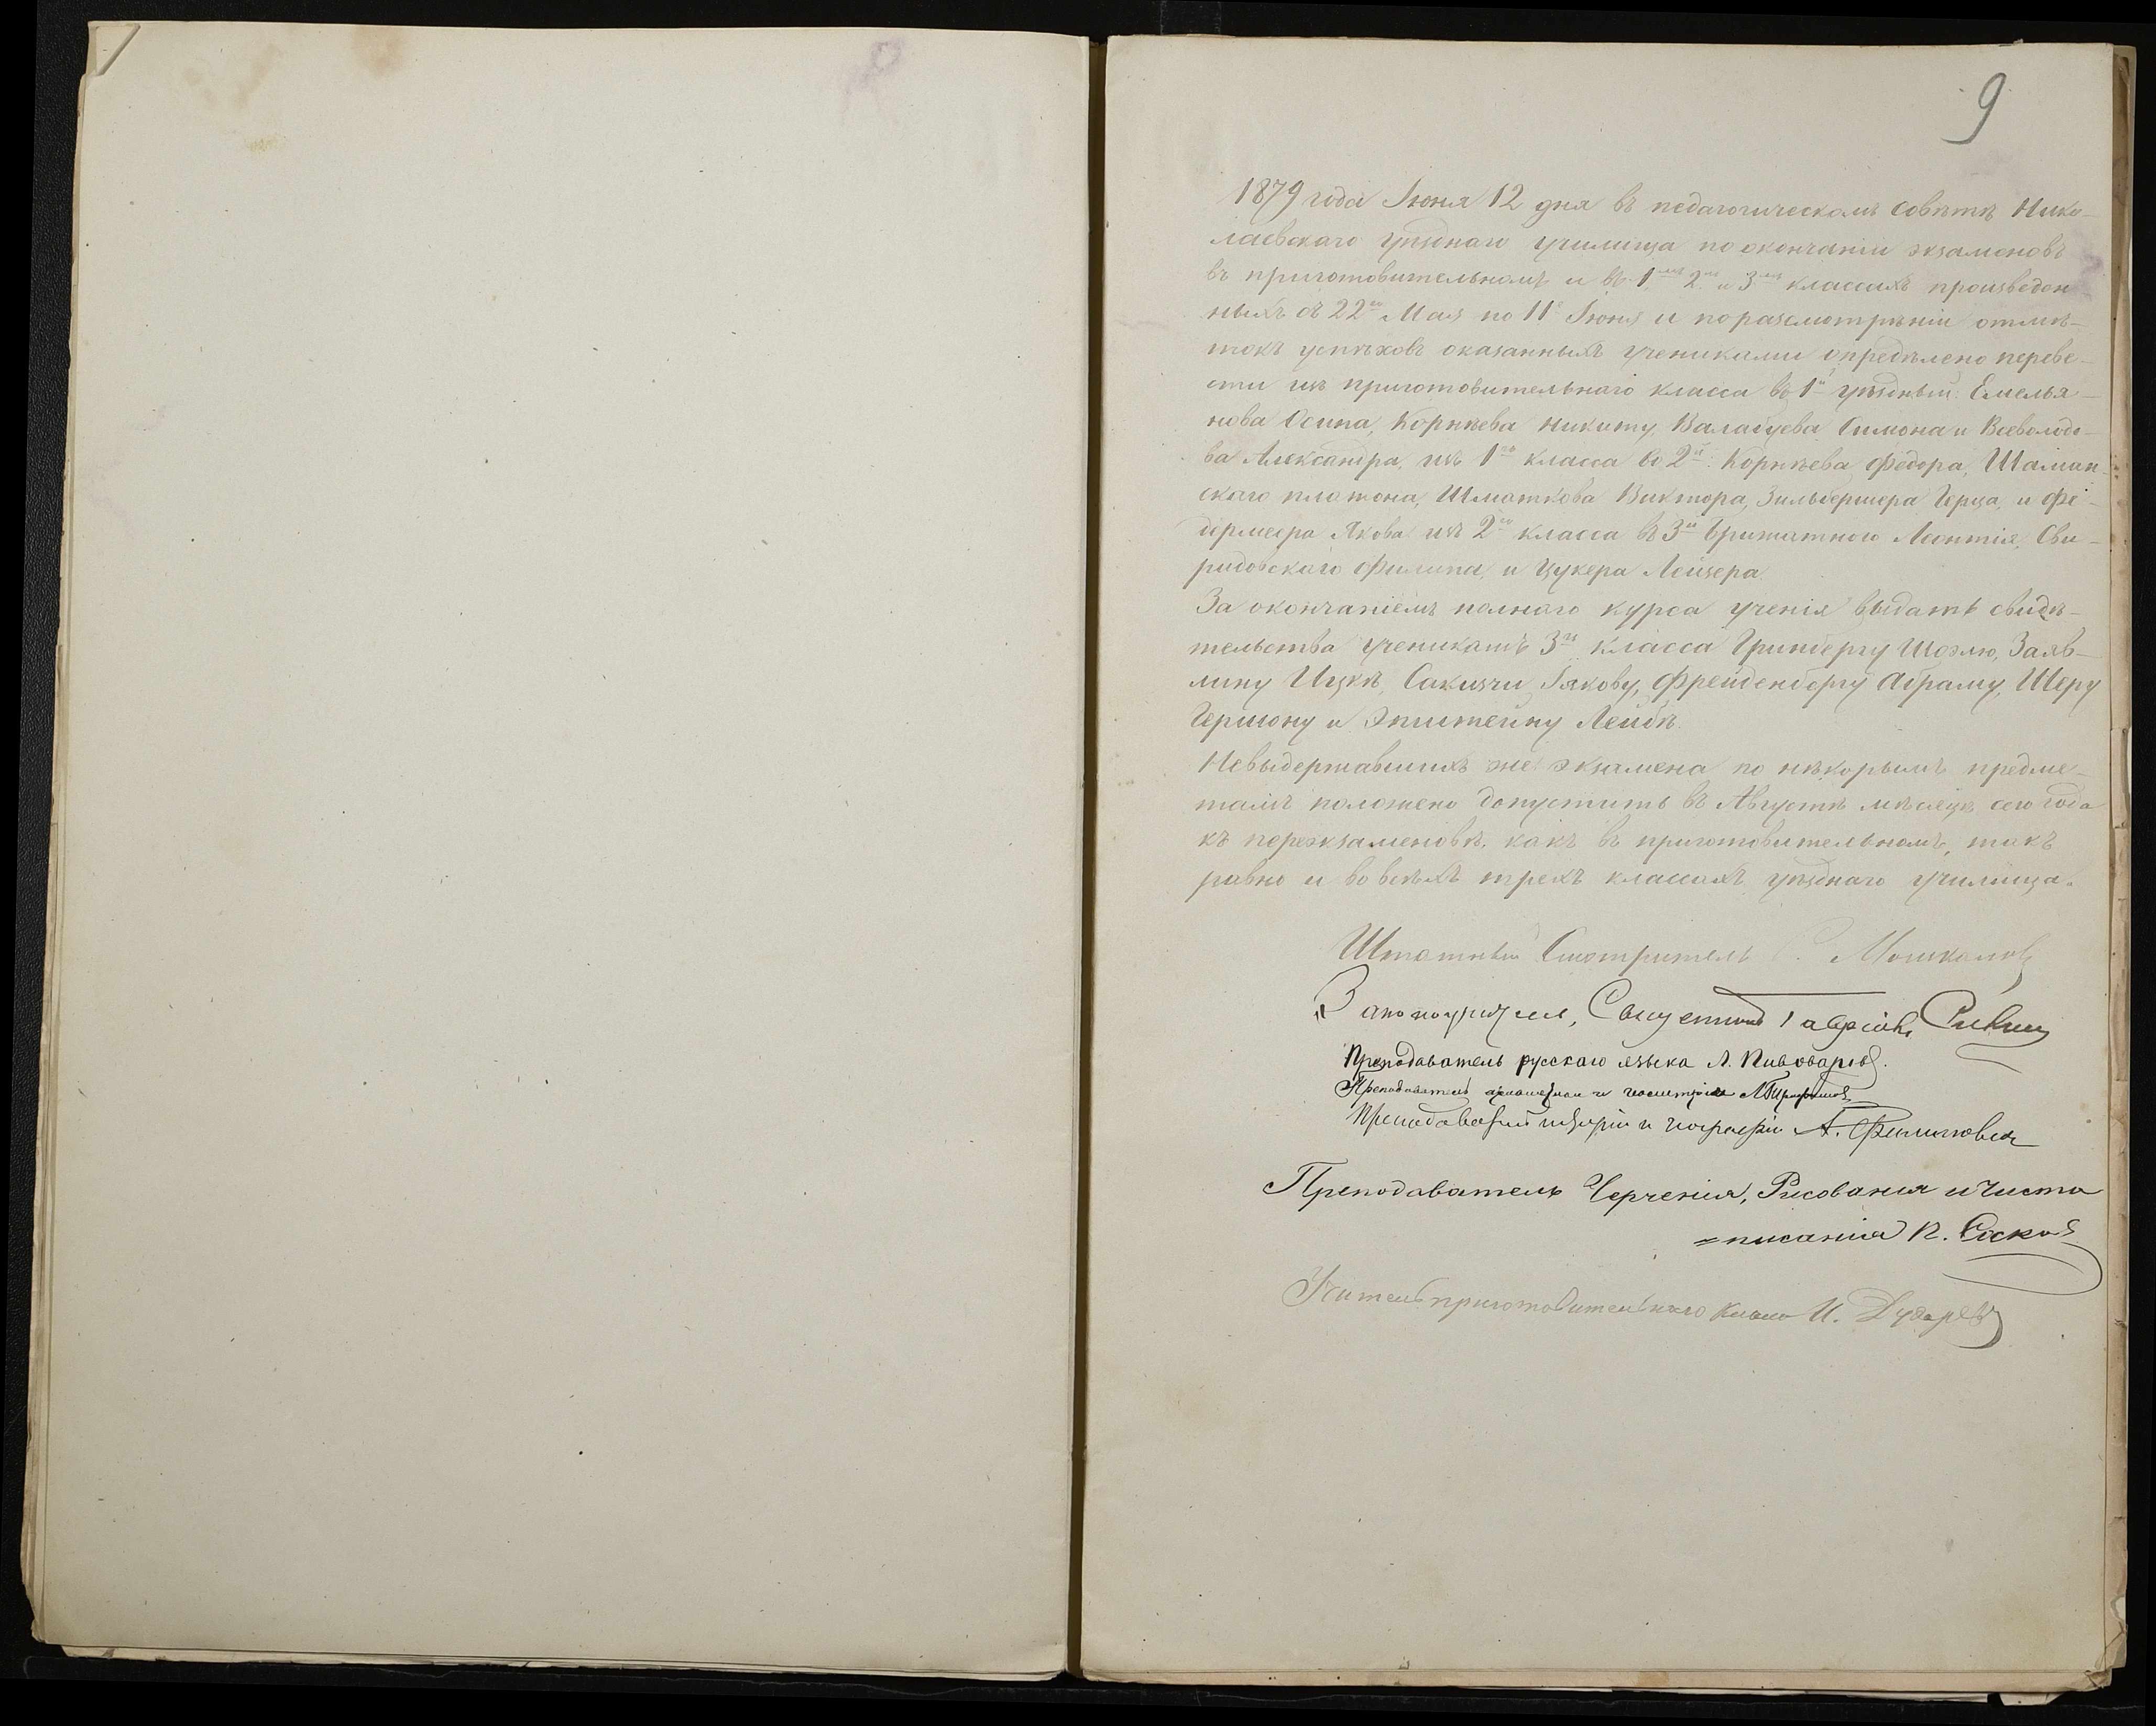 9
1879 года Іюня 12 дня въ педагогическомъ Совѣтѣ Нико-
лаевскаго уѣзднаго училища по окончаніи экзаменовъ
въ приготовительномъ и въ 1мъ 2мъ и 3мъ классахъ произведен
ныхъ съ 22го Мая по 11е Іюня и по разсмотрѣніи отмѣ-
токъ успѣховъ оказанныхъ учениками опредѣлено переве-
сти изъ приготовительнаго класса въ 1й уѣздный: Емелья-
нова Осипа, Корнѣева Никиту, Симона и Всеволодо-
ва Александра, изъ 1го класса во 2й: Корнѣева Федора, Шаман-
скаго Платона, Шматкова Виктора, Герца, и Фе-
дермеера Якова изъ 2го класса въ 3й Леонтія, Сви-
ридовскаго Филипа, и Цукера Лейзера.
За окончаніемъ полнаго курса ученія выдать свидѣ-
тельства ученикамъ 3го класса Гринбергу Шоэлю, Заяв-
лину Ицкѣ, Сакизчи Іакову, Фрейденбергу Абраму, Шеру
Гершону и Эпштейну Лейбѣ.
Невыдержавшихъ же экзамена по нѣкорымъ предме-
тамъ положено допустить въ Августѣ мѣсяцѣ сего года
къ переэкзаменовкѣ, какъ въ приготовительномъ, такъ
равно и во всѣхъ трехъ классахъ уѣзднаго училища.
Штатный Смотритель Мошкаловъ
Законоучитель, Священникъ Гавріилъ
Преподаватель русскаго языка Л. Пивоваровъ.
Преподаватель ариѳметики и геометріи
Преподаватель исторіи и географіи А. Филиповичъ
Преподаватель Черченія, Рисованія и Чисто
=писанія П. Сосковъ
Учитель приготовительнаго класса И. Дударевъ